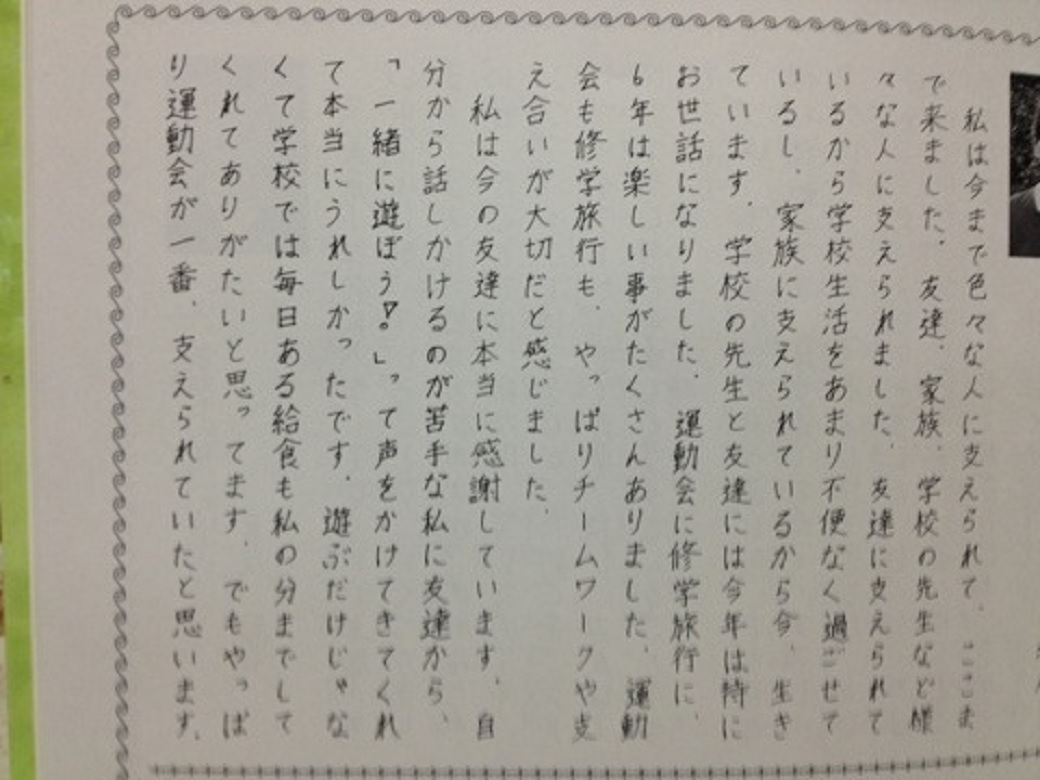 私は今まで色々な人に支えられて、ここま
で来ました。友達、家族、学校の先生など様
々な人に支えられました。友達に支えられて
いるから学校生活をあまり不便なく過ごせて
いるし、家族に支えられているから今、生き
ています。学校の先生と友達には今年は特に
お世話になりました。運動会に修学旅行に、
6年は楽しい事がたくさんありました。運動
会も修学旅行も、やっぱりチームワークや支
え合いが大切だと感じました。
私は今の友達に本当に感謝しています。自
分から話しかけるのが苦手な私に友達から、
「一緒に遊ぼう!」って声をかけてきてくれ
て本当にうれしかったです。遊ぶだけじゃな
くて学校では毎日ある給食も私の分までして
くれてありがたいと思ってます。でもやっぱ
り運動会が一番、支えられていたと思います。